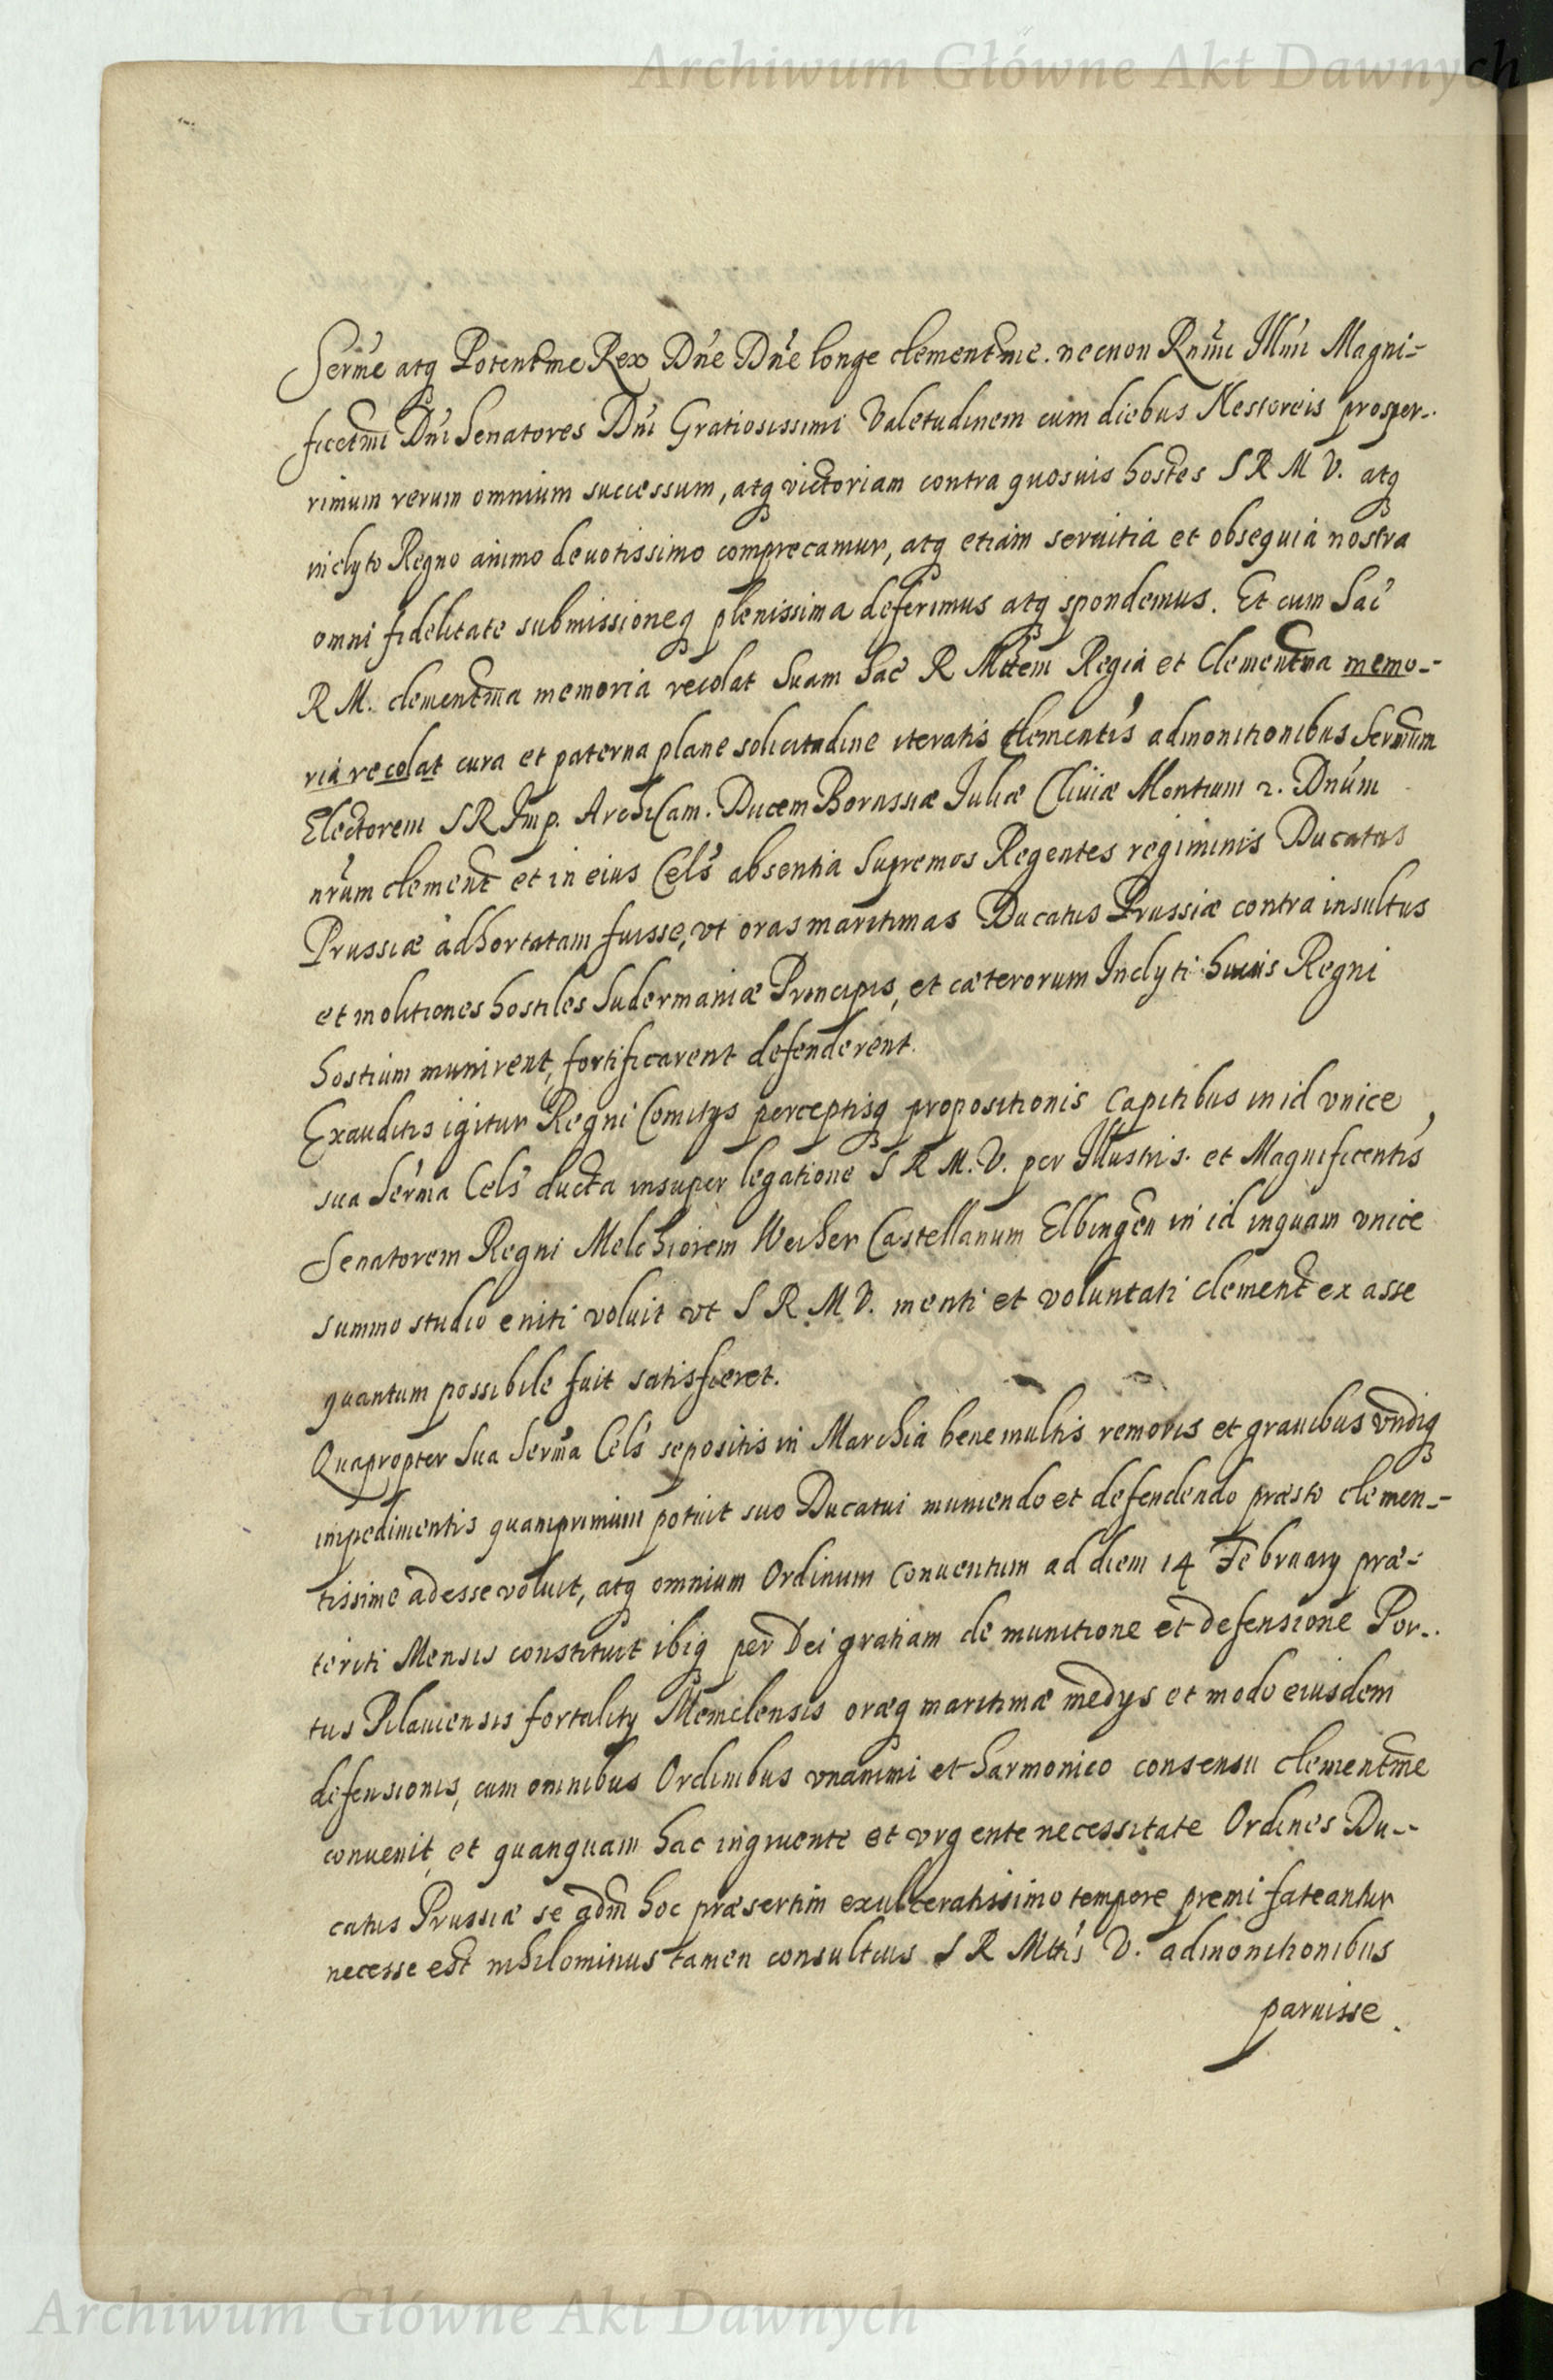 Archiwum Główne Akt Dawnych
Serme atq Potentme Rex Dne Dne longe clementme. necnon Rnmi Illmi Magni-
ficetmi Dni Senatores Dni Gratiosissimi Valetudinem cum diebus Nestoreis prosper-
rimum rerum omnium successum, atq victoriam contra quosuis hostes S R M V. atq
inclyto Regno animo deuotissimo comprecamur, atq etiam seruitia et obsequia nostra
omni fidelitate submissioneq plenissima deferimus atq spondemus. Et cum Sac
R M. clementma memoria recolat Suam Sac R Mttem Regia et Clementma memo-
ria recolat cura et paterna plane solicitudine iteratis clementis admonitionibus Sermum
Electorem S R Imp. ArchiCam. Ducem Borussiæ Juliæ Cliuiæ Montium 2. Dnum
nrum clement et in eius Cels absentia Supremos Regentes regiminis Ducatus
Prussiæ adhortatam fuisse, vt oras maritimas Ducatus Prussiæ contra insultus
et molitiones hostiles Sudermaniæ Principis, et cæterorum Inclyti huius Regni
hostium munirent, fortificarent defenderent.
Exauditis igitur Regni Comitys perceptisq propositionis Capitibus in id vnice
sua Serma Cels ducta insuper legatione S R M. V. per Illustris. et Magnificentis
Senatorem Regni Melchiorem Weiher Castellanum Elbingen in id inquam vnice
summo studio eniti voluit vt S R M V. menti et voluntati clement ex asse
quantum possibile fuit satisfieret.
Quapropter Sua Serma Cels sepositis in Marchia bene multis remoris et grauibus vndiq
impedimentis quamprimum potuit suo Ducatui muniendo et defendendo præsto clemen-
tissime adesse voluit, atq omnium Ordinum Conuentum ad diem 14 Februarij præ-
teriti Mensis constituit ibiq per Dei gratiam de munitione et defensione Por-
tus Pilauiensis fortality Memelensis oræq maritimæ medys et modo eiusdem
defensionis, cum omnibus Ordinibus vnanimi et harmonico consensu clementme
conuenit, et quanquam hac ingruente et vrgente necessitate Ordines Du-
catus Prussiæ se adm hoc præsertim exulceratissimo tempore premi fateantur
necesse est nihilominus tamen consultius S R Mttis V. admonitionibus
paruisse.
Archiwum Główne Akt Dawnych